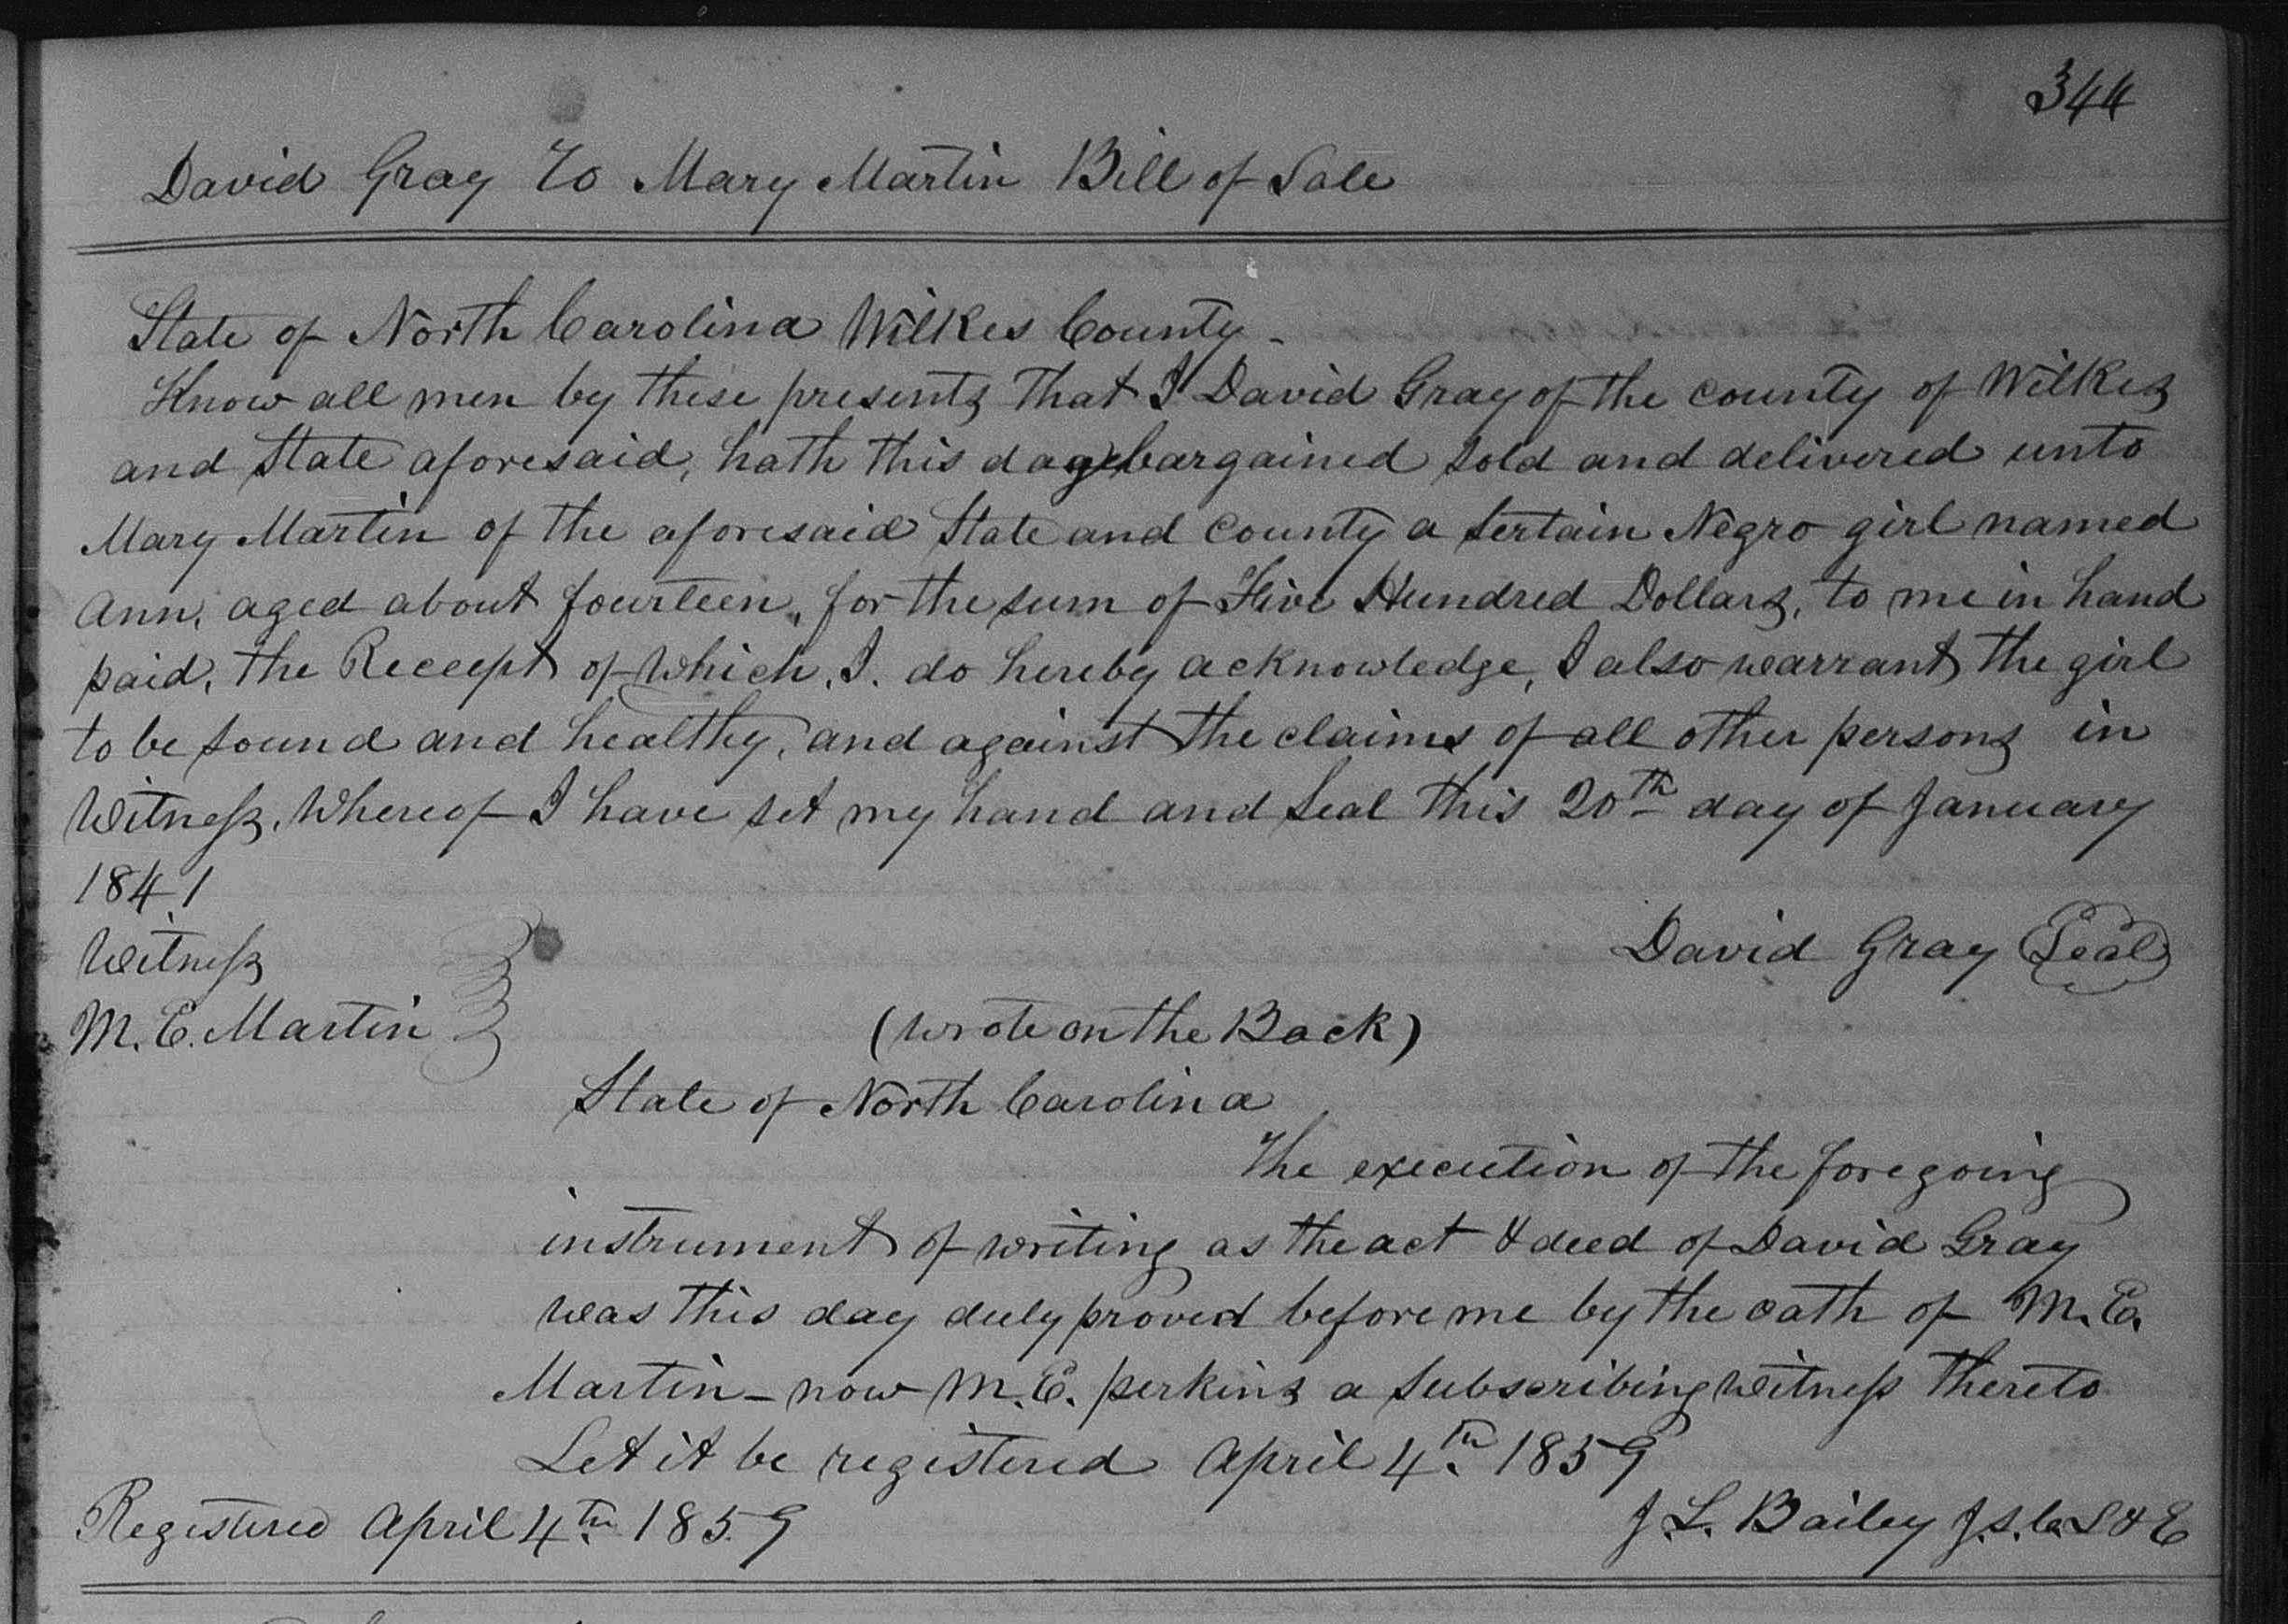 344
David Gray To Mary Martin Bill of Sale
State of North Carolina Wilkes County -
Know all men by these presents that I David Gray of the county of Wilkes
and State aforesaid, hath this day bargained sold and delivered unto
Mary Martin of the aforesaid State and County a sertain Negro girl named
Ann, aged about fourteen, for the sum of Five Hundred Dollars, to me in hand
paid, the Receept of which, I. do hereby acknowledge, I also warrant the girl
to be sound and healthy, and against the claims of all other persons in
Witness, Whereof I have set my hand and seal this 20th day of January
1841
Witness
David Gray Seal
M. E. Martin
(wrote on the Back)
State of North Carolina
The execution of the foregoing
instrument of writing as the act & deed of David Gray
was this day duly proved before me by the oath of M. E.
Martin - now M. E. perkins a subscribing witness thereto
Let it be registered April 4th 1859
Registered April 4th 1859
J. L. Bailey J. S. C. L & E